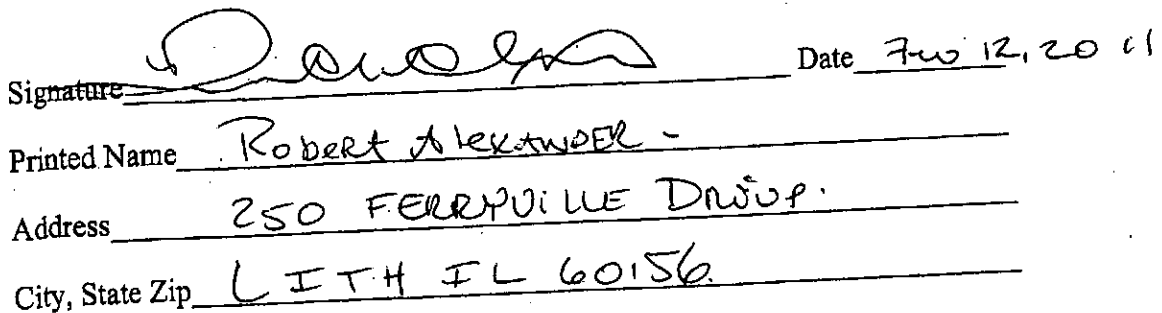 Signature Date 12, 20 11
Printed Name Robert Alexander -
Address 250 FERRYVILLE Drive.
City, State Zip LITH IL 60156.